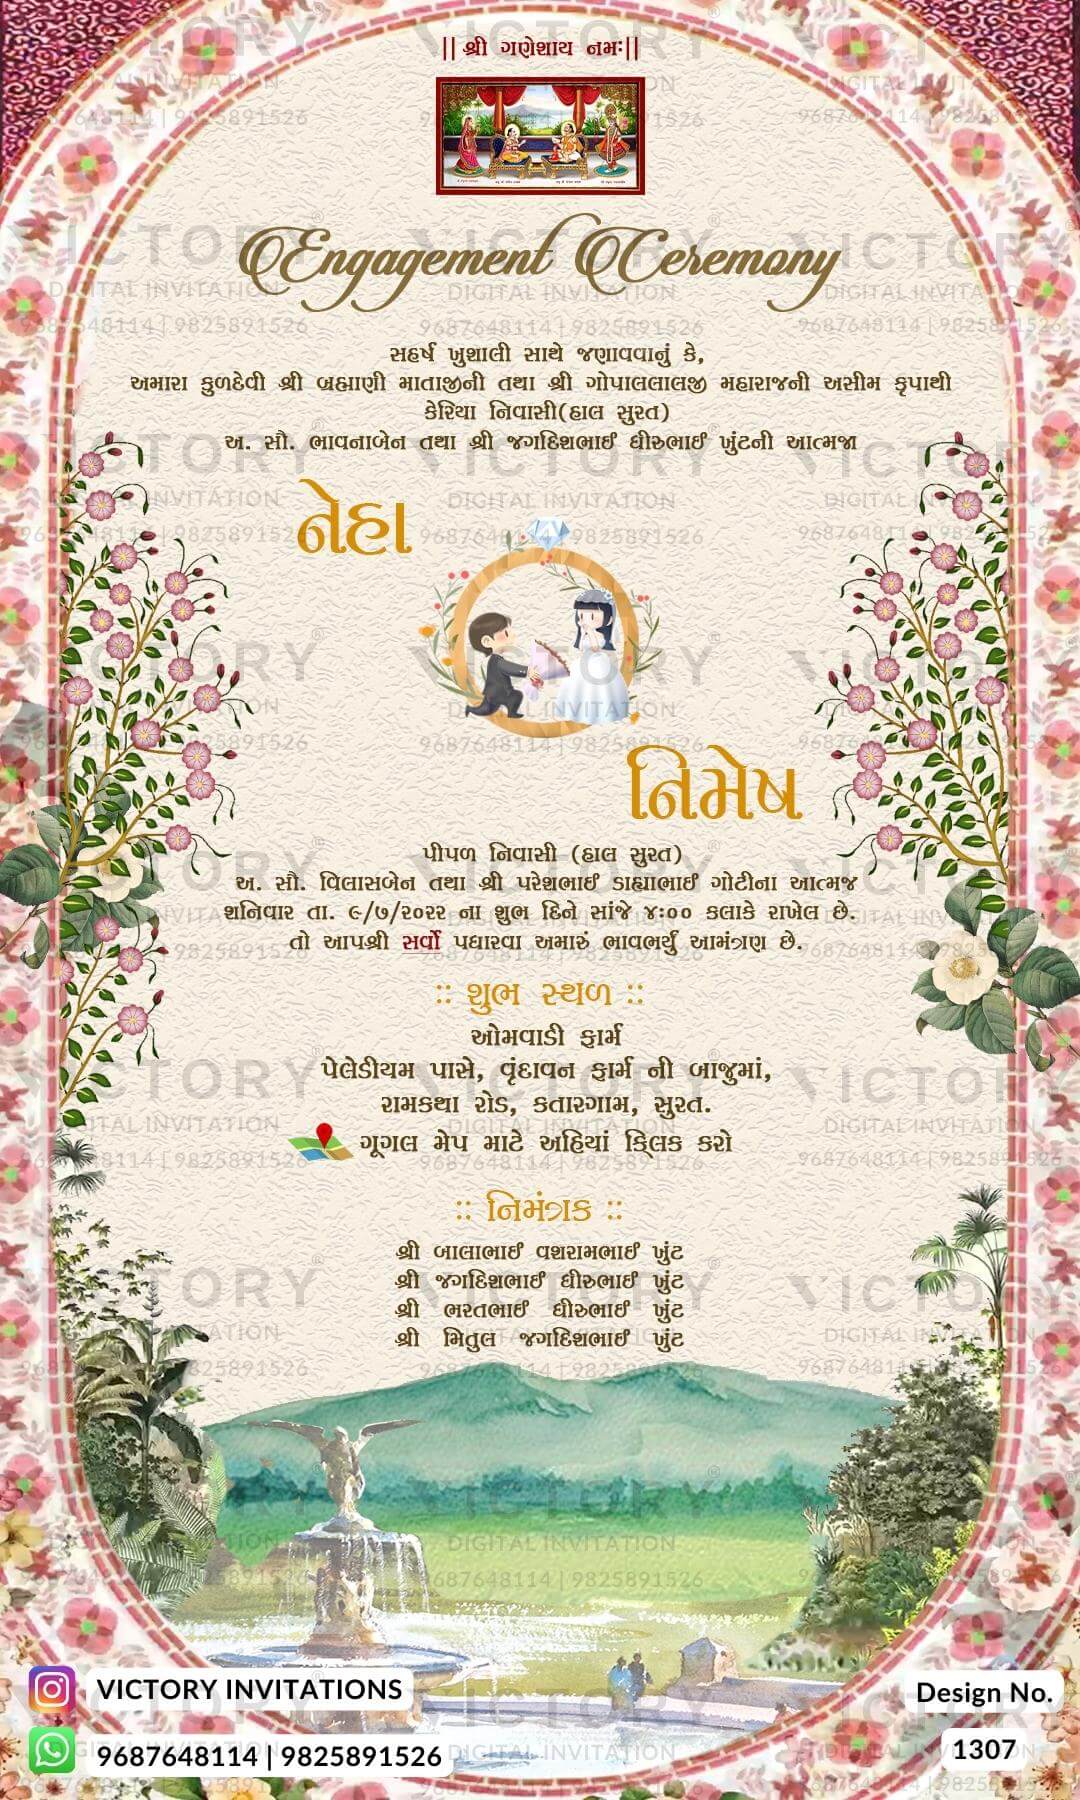 || શ્રી ગણેશાય નમઃ||
Engagement Ceremony
સહર્ષ ખુશાલી સાથે જણાવવાનું કે,
અમારા કુળદેવી શ્રી બ્રહ્માણી માતાજીની તથા શ્રી ગોપાલલાલજી મહારાજની અસીમ કૃપાથી
કેરિયા નિવાસી(હાલ સુરત)
અ. સૌ. ભાવનાબેન તથા શ્રી જગદિશભાઈ ધીરુભાઈ ખુંટની આત્મજા
નેહા
નિમેષ
પીપળ નિવાસી (હાલ સુરત)
અ. સૌ. વિલાસબેન તથા શ્રી પરેશભાઈ ડાહ્યાભાઈ ગોટીના આત્મજ
શનિવાર તા. ૯/૭/૨૦૨૨ ના શુભ દિને સાંજે ૪:૦૦ કલાકે રાખેલ છે.
તો આપશ્રી સર્વો પધારવા અમારું ભાવભર્યું આમંત્રણ છે.
:: શુભ સ્થળ ::
ઓમવાડી ફાર્મ
પેલેડીયમ પાસે, વૃંદાવન ફાર્મ ની બાજુમાં,
રામકથા રોડ, કતારગામ, સુરત.
ગૂગલ મેપ માટે અહિયાં ક્લિક કરો
:: નિમંત્રક ::
શ્રી બાલાભાઈ વશરામભાઈ ખુંટ
શ્રી જગદિશભાઈ ધીરુભાઈ ખુંટ
શ્રી ભરતભાઈ ધીરુભાઈ ખુંટ
શ્રી મિતુલ જગદિશભાઈ ખુંટ
VICTORY INVITATIONS
9687648114 | 9825891526
Design No.
1307